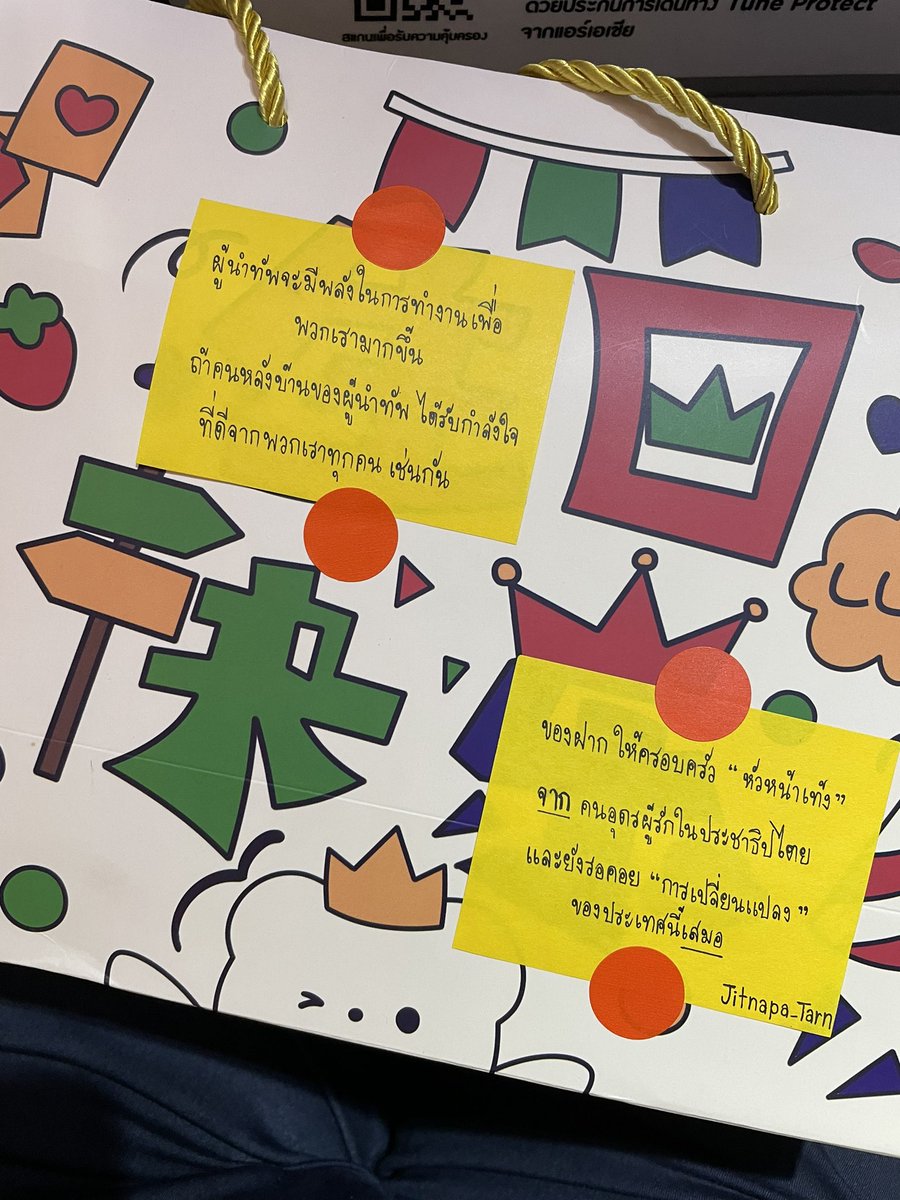 ด้วยประกันการเดินทาง Tune Protect
จากแอร์เอเชีย
สแกนเพื่อรับความคุ้มครอง
ผู้นำทัพจะมีพลังในการทำงานเพื่อ
พวกเรามากขึ้น
ถ้าคนหลังบ้านของผู้นำทัพ ได้รับกำลังใจ
ที่ดีจากพวกเราทุกคน เช่นกัน
ของฝาก ให้ครอบครัว “หัวหน้าเท้ง”
จาก คนอุดรผู้รักในประชาธิปไตย
และยังรอคอย “การเปลี่ยนแปลง”
ของประเทศนี้เสมอ
Jitnapa_Tarn